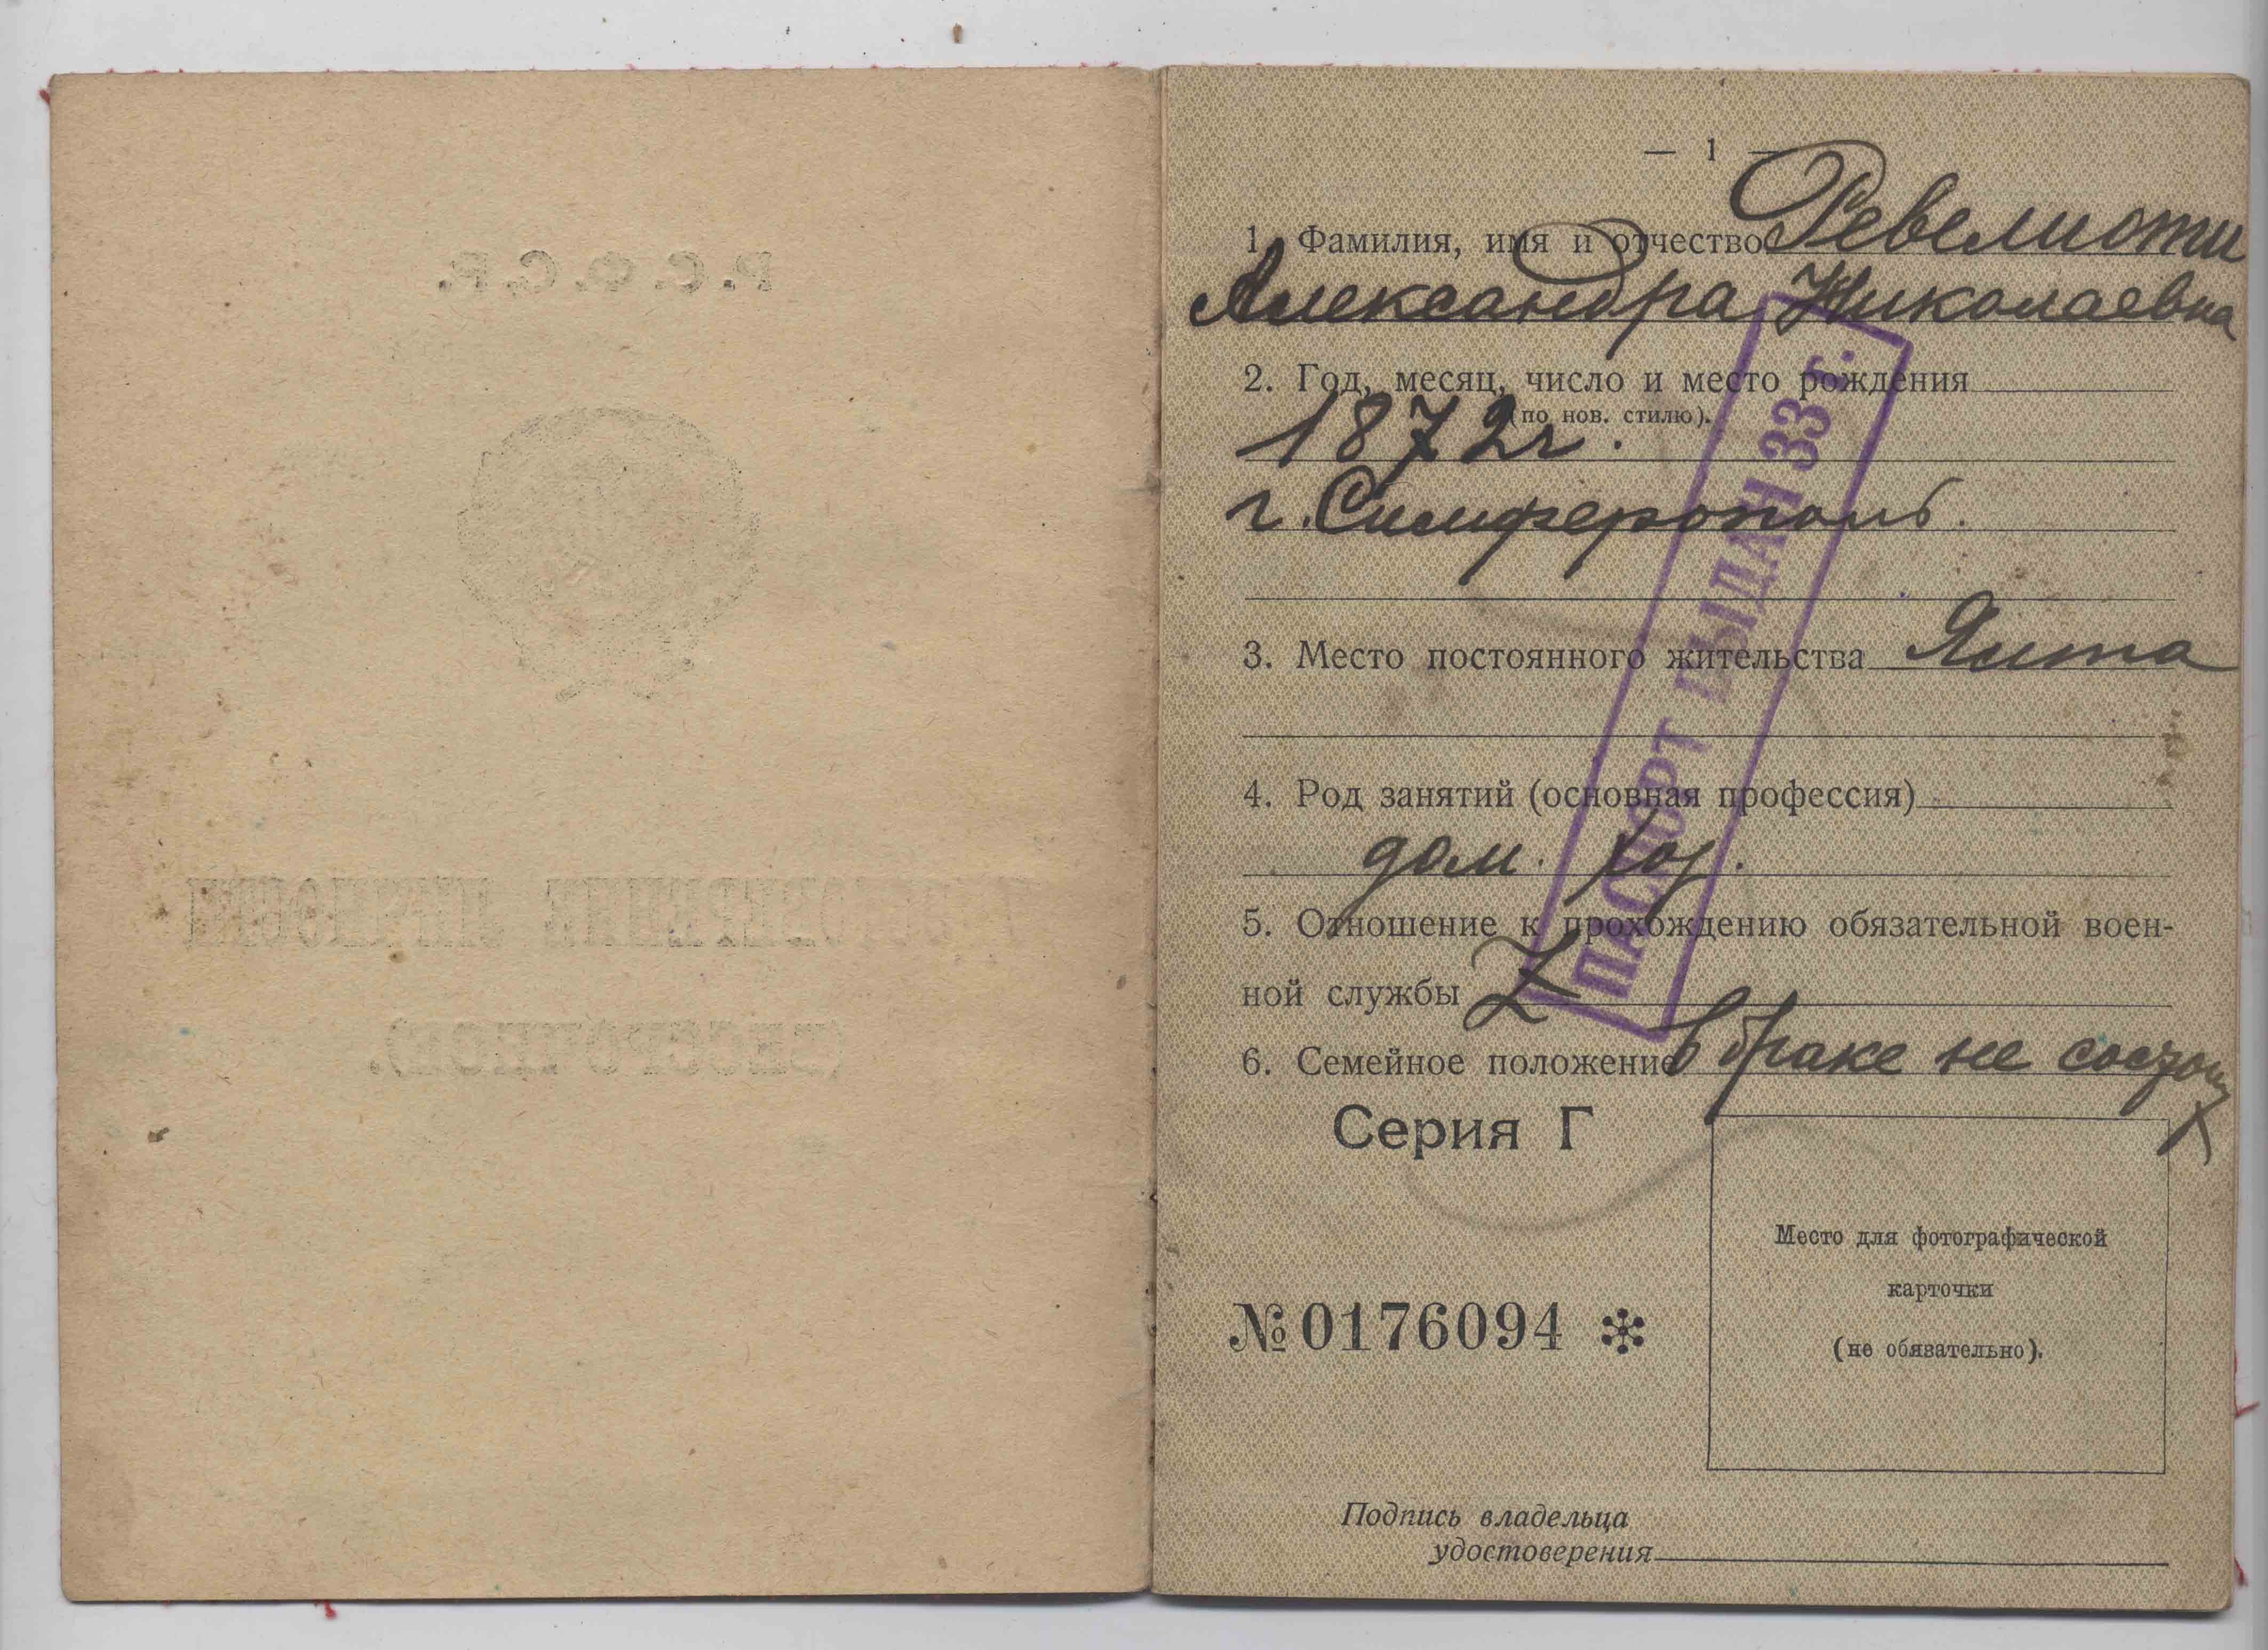 Р.С.Ф.С.Р.
УДОСТОВЕРЕНИЕ ЛИЧНОСТИ
(БЕССРОЧНОЕ).
— 1 —
1. Фамилия, имя и отчество Ревелиоти
Александра Николаевна
2. Год, месяц, число и место рождения
(по нов. стилю).
1872 г.
г. Симферополь.
3. Место постоянного жительства Ялта
4. Род занятий (основная профессия)
дом. хоз.
5. Отношение к прохождению обязательной воен-
ной службы
6. Семейное положение в браке не состоит
ПАСПОРТ ВЫДАН 33 г.
Серия Г
№ 0176094 *
Место для фотографической
карточки
(не обязательно).
Подпись владельца
удостоверения